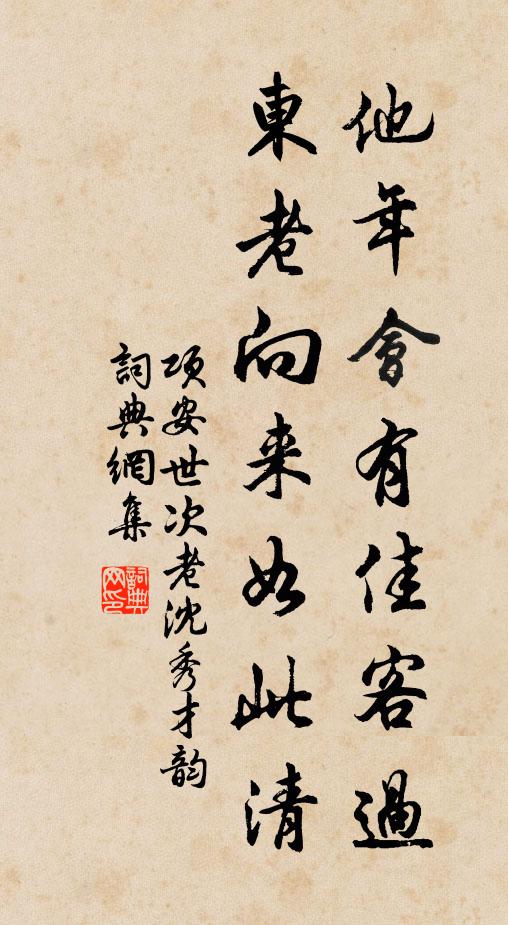 他年會有佳客過
東老向来如此清
項安世次老沈秀才韵
詞典網集
詞典网印